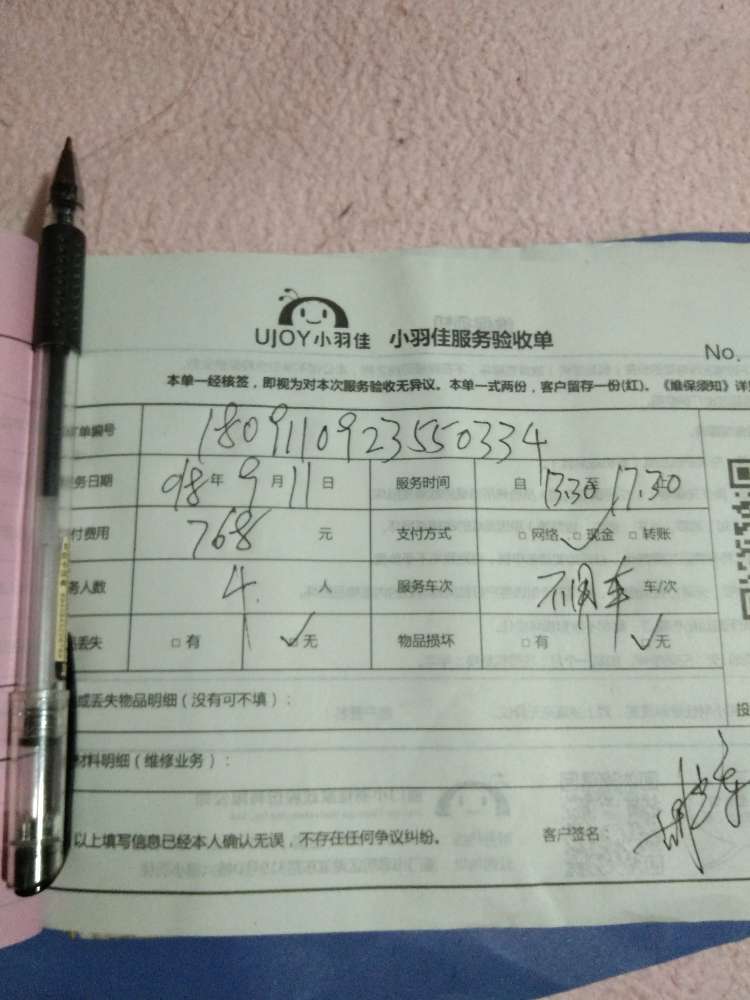 UJOY小羽佳 小羽佳服务验收单
No.
本单一经核签，即视为对本次服务验收无异议。本单一式两份，客户留存一份(红)。《维保须知》详
单编号 1809110923550334
务日期 98年9月11日 服务时间 自13.30至17.30
付费用 768元 支付方式 □网络 ✓□现金 □转账
务人数 4.人 服务车次 不用车 车/次
丢失 □有 ✓无 物品损坏 □有 ✓无
或丢失物品明细（没有可不填）：
材料明细（维修业务）：
以上填写信息已经本人确认无误，不存在任何争议纠纷。 客户签名：